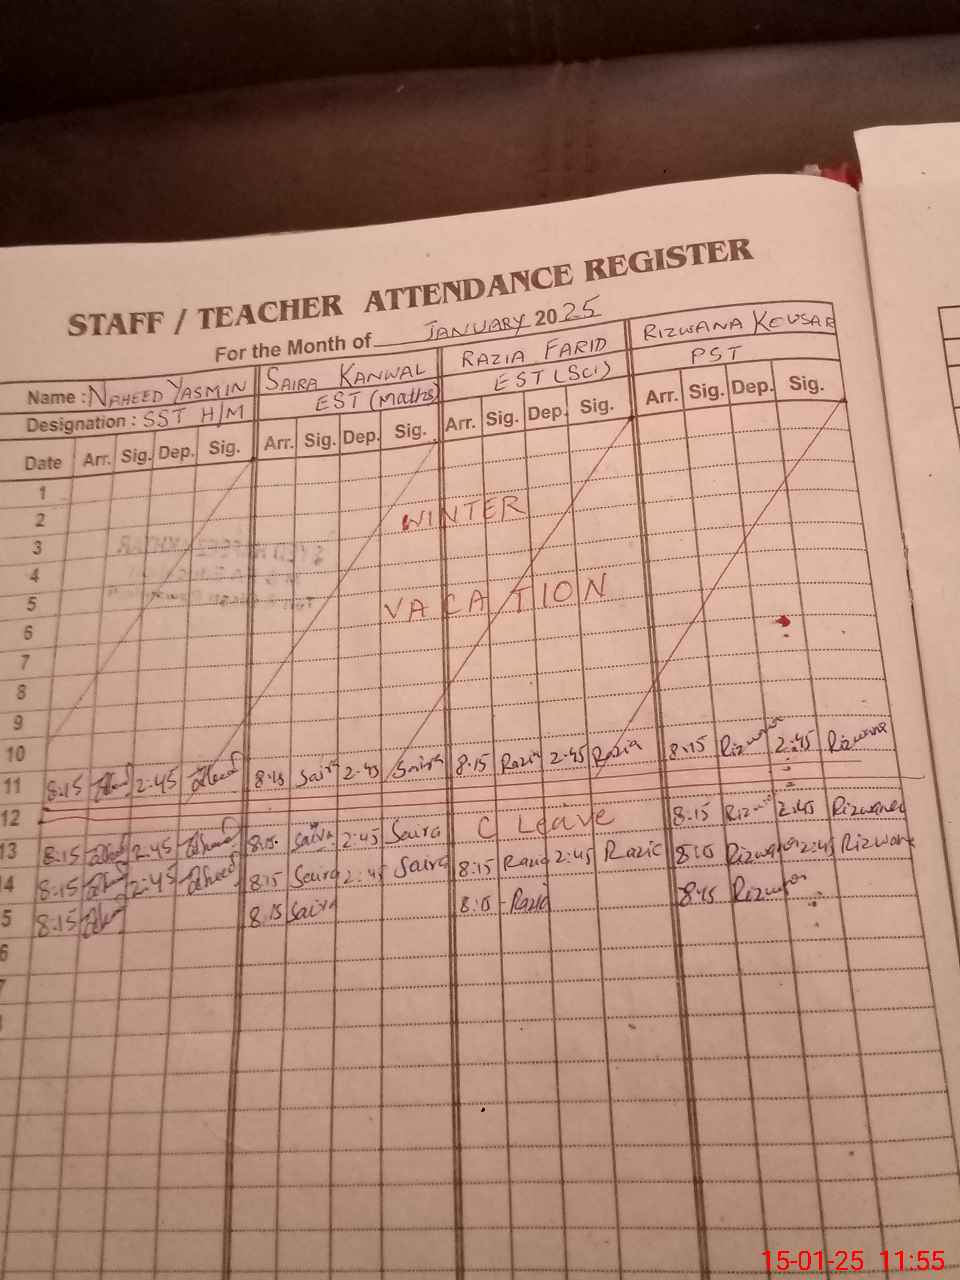 STAFF / TEACHER ATTENDANCE REGISTER
For the Month of JANUARY 2025
Name : NAHEED YASMIN SAIRA KANWAL RAZIA FARID RIZWANA KEUSAR
Designation : SST H/M EST (Maths) EST (Sci) PST
Date Arr. Sig. Dep. Sig. Arr. Sig. Dep. Sig. Arr. Sig. Dep. Sig. Arr. Sig. Dep. Sig.
1
2 WINTER
3
4
5 VACATION
6
7
8
9
10
11 8:15 2:45 8:15 Saira 2:45 Saira 8:15 Razia 2:45 Razia 8:15 2:45 Rizwana
12
13 8:15 2:45 8:15 Saira 2:45 Saira C Leave 8:15 2:45
14 8:15 2:45 8:15 Saira 2:45 Saira 8:15 2:45 8:15 2:45
5 8:15 8:15 Saira 8:15 Razia 8:15
6
7
15-01-25 11:55